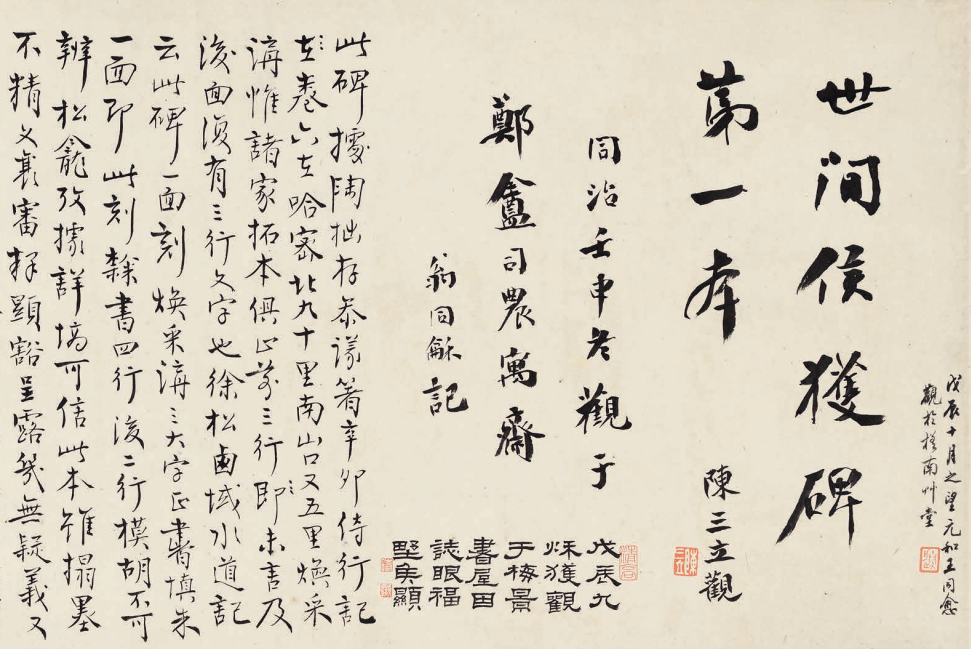 戊辰十月之望元和王同愈
觀於槎南艸堂
世間侯獲碑
第一本
陳三立觀
同治壬申冬觀于
鄭盦司農寓齋
翁同龢記
戊辰九
秌獲觀
于梅景
書屋用
誌眼福
此碑據陶拙存叅議著辛卯侍行記
卷六在哈密北九十里南山口又五里煥采
溝惟諸家拓本俱止前三行即未言及
後面復有三行文字也徐松鹵域水道記
云此碑一面刻煥采溝三大字正書填朱
一面即此刻隸書四行後二行模胡不可
辨松龕攷據詳塙可信此本雖搨墨
不精文義審釋顯豁呈露幾無疑義又